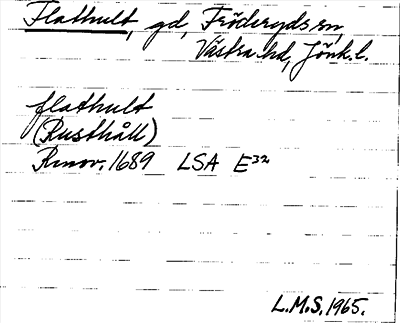 Flathult, gd, Fröderyds sn,
Västra hd, Jönk. l.
flathult
(Rusthåll)
Rmov. 1689 LSA E32
L.M.S. 1965.